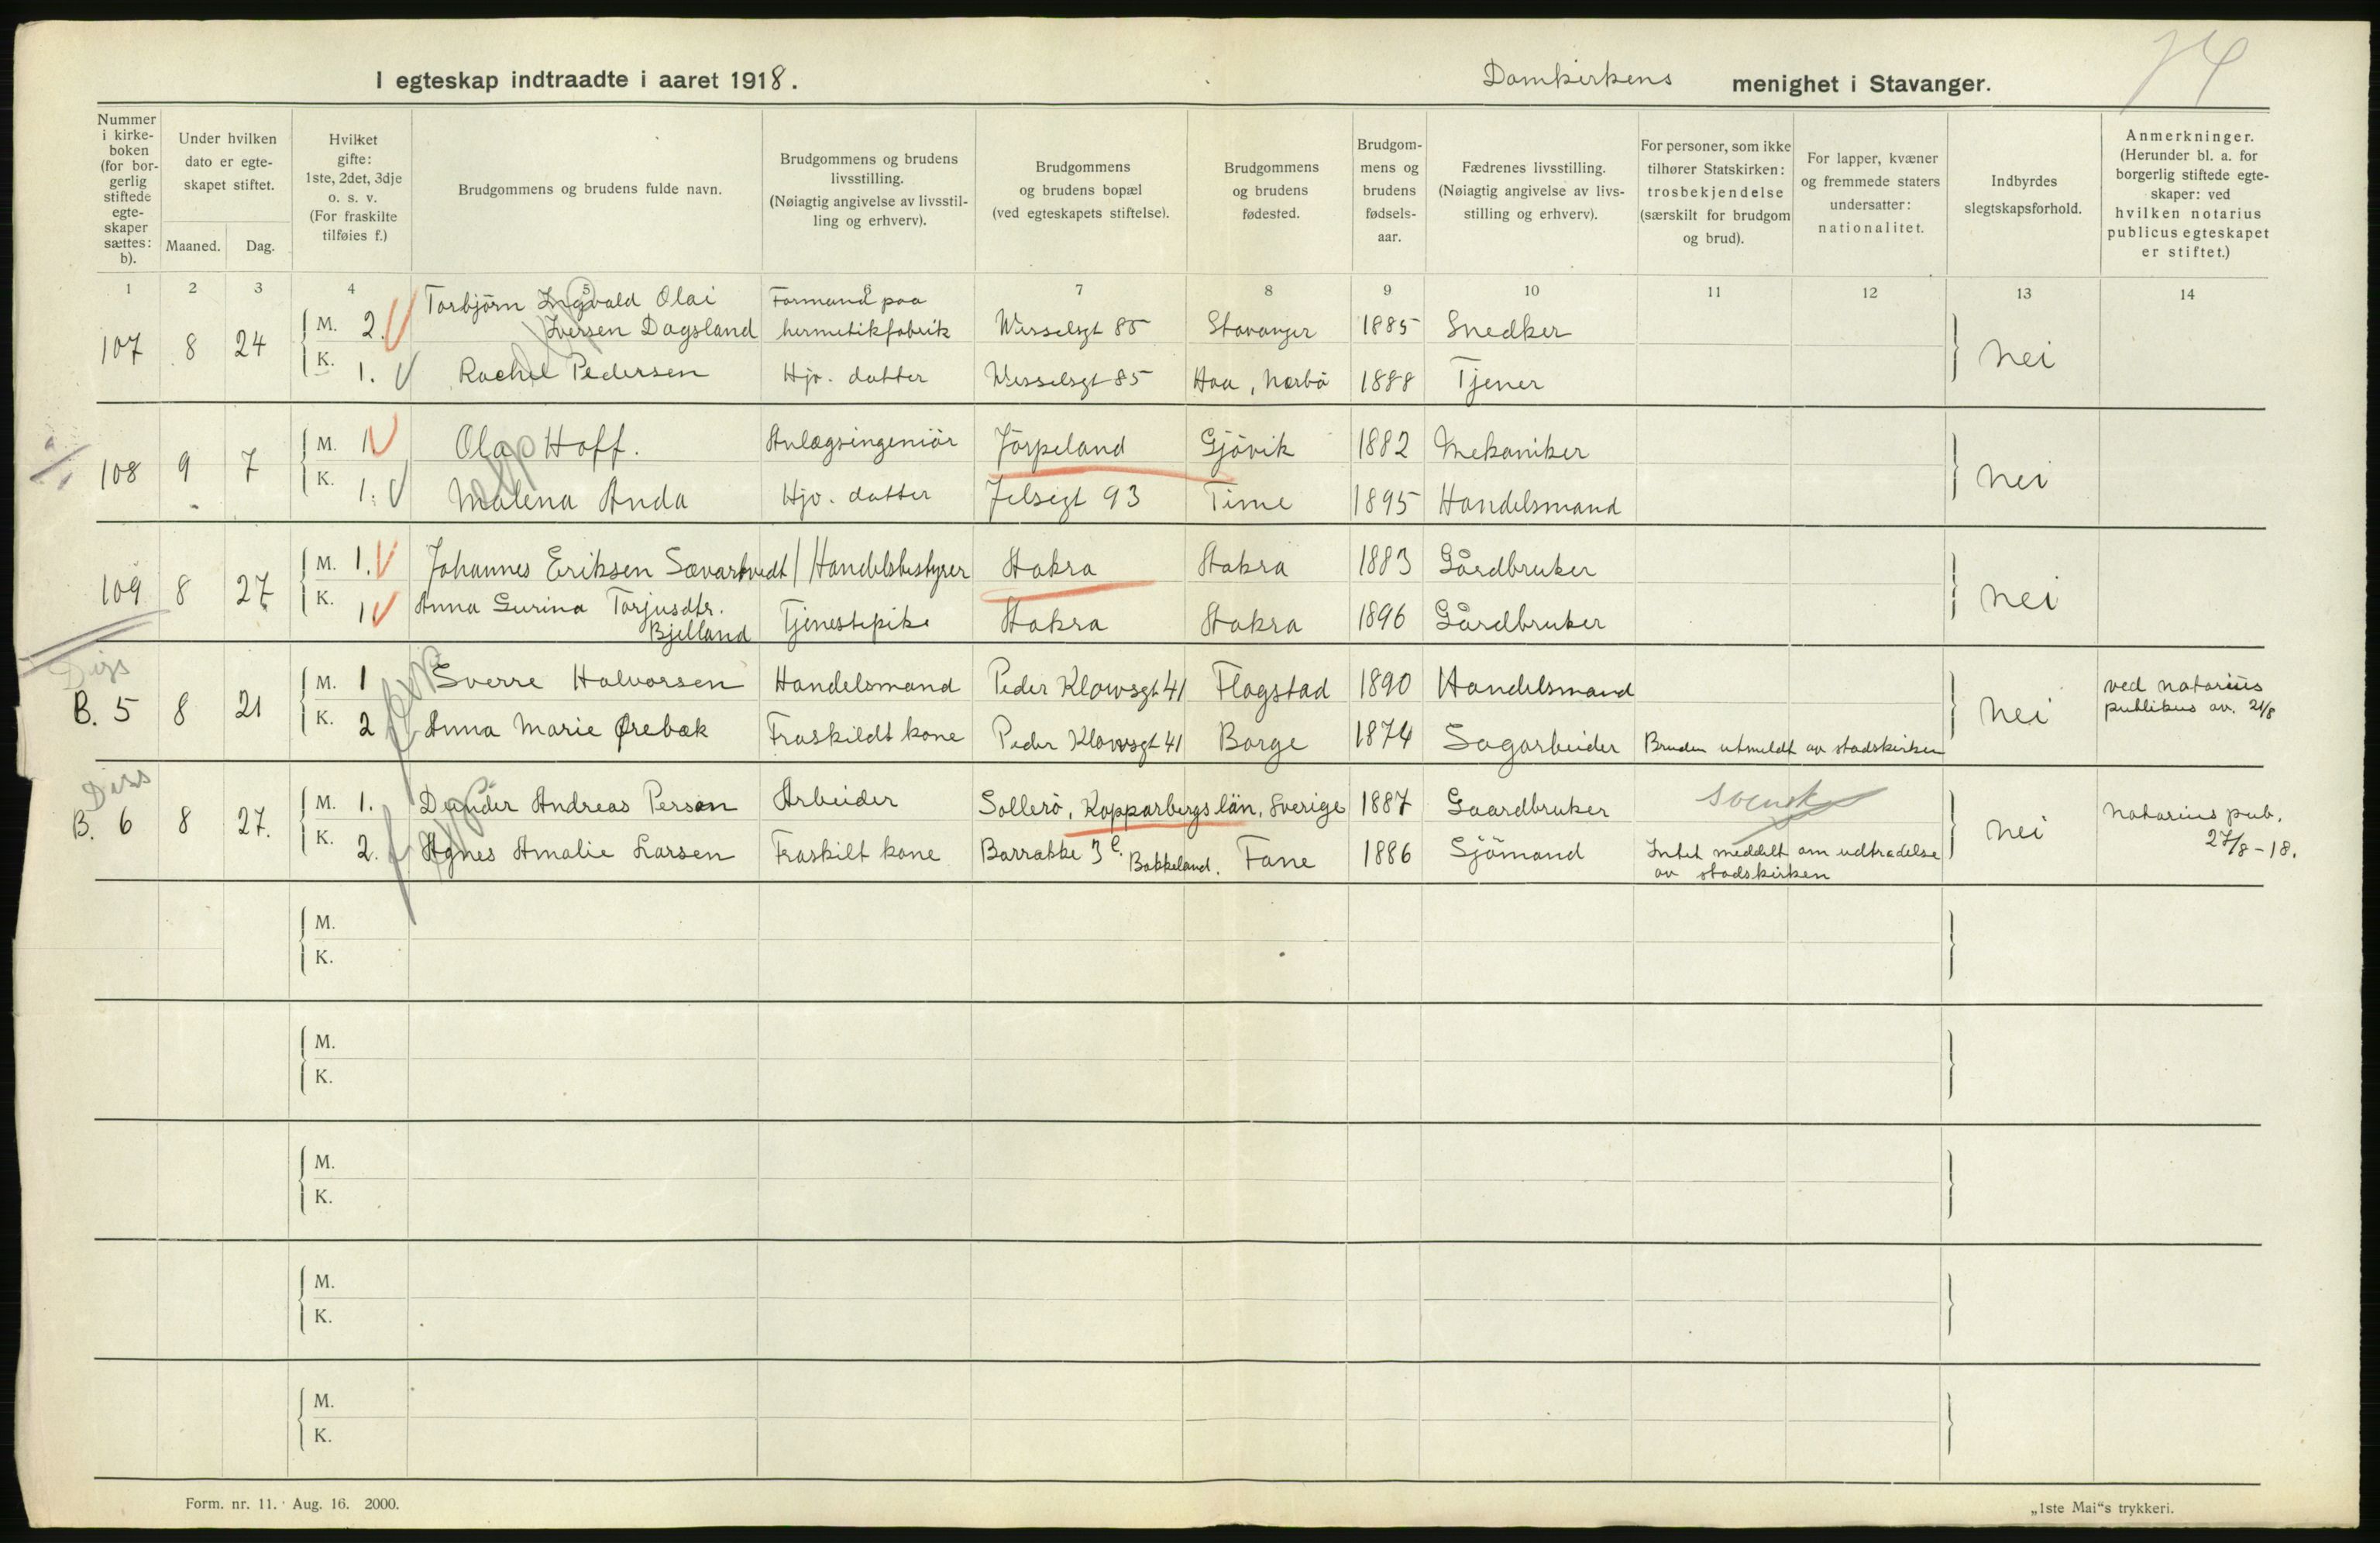 74
I egteskap indtraadte i aaret 1918. Domkirkens menighet i Stavanger.
Nummer i kirkeboken (for borgerlig stiftede egteskaper sættes: b).
Under hvilken dato er egteskapet stiftet.
Maaned. Dag.
Hvilket gifte: 1ste, 2det, 3dje o. s. v. (For fraskilte tilføies f.)
Brudgommens og brudens fulde navn.
Brudgommens og brudens livsstilling. (Nøiagtig angivelse av livsstilling og erhverv).
Brudgommens og brudens bopæl (ved egteskapets stiftelse).
Brudgommens og brudens fødested.
Brudgommens og brudens fødselsaar.
Fædrenes livsstilling. (Nøiagtig angivelse av livsstilling og erhverv).
For personer, som ikke tilhører Statskirken: trosbekjendelse (særskilt for brudgom og brud).
For lapper, kvæner og fremmede staters undersatter: nationalitet.
Indbyrdes slegtskapsforhold.
Anmerkninger. (Herunder bl. a. for borgerlig stiftede egteskaper: ved hvilken notarius publicus egteskapet er stiftet.)
1 2 3 4 5 6 7 8 9 10 11 12 13 14
107 8 24 M. 2. Torbjörn Ingvald Olai Iversen Dagsland Formand paa hermetikfabrik Wesselsgt 85 Stavanger 1885 Snedker nei
K. 1. Rachel Pedersen Hjv. datter Wesselsgt 85 Haa, Nærbö 1888 Tjener
108 9 7 M. 1 Olaf Hoff. Anlægsingeniör Jörpeland Gjövik 1882 Mekaniker nei
K. 1. Malena Anda Hjv. datter Jelsegt 93 Time 1895 Handelsmand
109 8 27 M. 1. Johannes Eriksen Sævartvedt Handelsbestyrer Stakra Stakra 1883 Gårdbruker nei
K. 1 Anna Gurina Torjusdtr. Bjelland Tjenestepike Stakra Stakra 1896 Gårdbruker
Diss
B. 5 8 21 M. 1 Sverre Halvorsen Handelsmand Peder Klowsgt 41 Flagstad 1890 Handelsmand nei ved notarius publikus av. 21/8
K. 2 Anna Marie Ørebæk Fraskildt kone Peder Klowsgt 41 Borge 1874 Sagarbeider Bruden utmeldt av stadskirken
Diss
B. 6 8 27. M. 1. Dander Andreas Persen Arbeider Sollerö, Kopparbergs län, Sverige 1887 Gaardbruker svensk nei Notarius pub. 27/8-18.
K. 2. Agnes Amalie Larsen Fraskilt kone Barrakke 3 e. Bakkeland. Fane 1886 Sjömand Intet meddelt om udtrædelse av stadskirken
M.
K.
M.
K.
M.
K.
M.
K.
M.
K.
Form. nr. 11. Aug. 16. 2000.
„1ste Mai“s trykkeri.